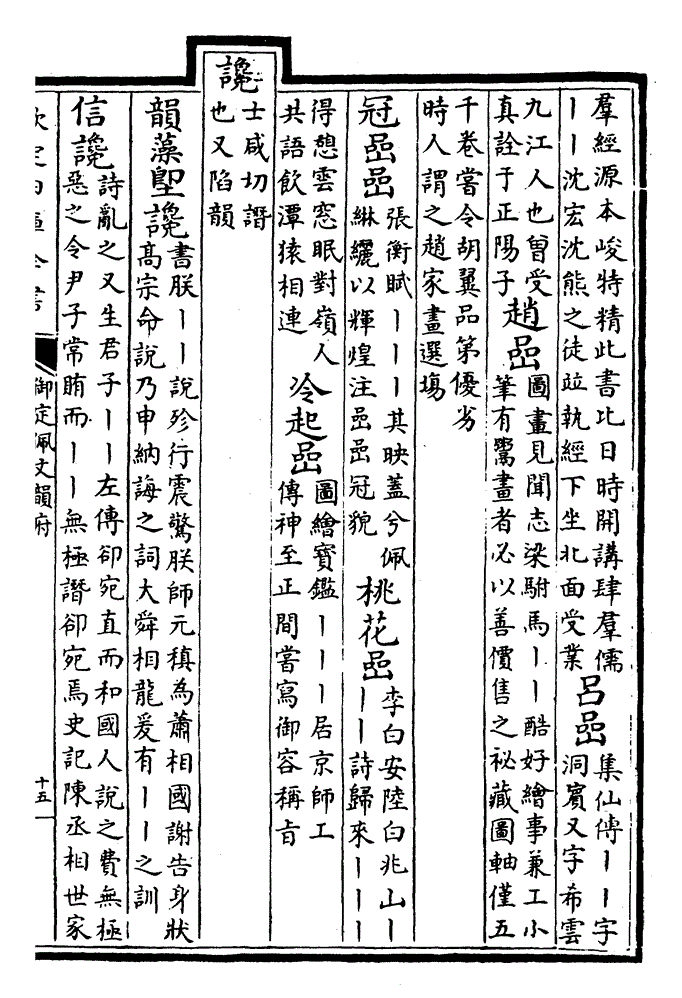 羣經源本峻特精此書比日時開講肆羣儒
丨丨沈宏沈熊之徒竝執經下坐北面受業
呂嵒
集仙傳丨丨字
洞賓又字希雲
九江人也曽受
真詮于正陽子
趙嵒
圖畫見聞志梁駙馬丨丨酷好繪事兼工小
筆有鸎畫者必以善價售之祕藏圖軸僅五
千卷嘗令胡翼品第優劣
時人謂之趙家畫選塲
冠嵒嵒
張衡賦丨丨丨其映蓋兮佩
綝纚以輝煌注嵒嵒冠貌
桃花嵒
李白安陸白兆山丨
丨丨詩歸來丨丨丨
得憩雲窓眠對嶺人
共語飲潭猿相連
冷起嵒
圖繪寶鑑丨丨丨居京師工
傳神至正間嘗寫御容稱㫖
讒
士咸切譖
也又陷韻
韻藻堲讒
書朕丨丨說殄行震驚朕師元稹為蕭相國謝告身狀
高宗命說乃申納誨之詞大舜相龍爰有丨丨之訓
信讒
詩亂之又生君子丨丨左傳卻宛直而和國人說之費無極
惡之令尹子常賄而丨丨無極譖卻宛焉史記陳丞相世家
欽定四庫全書
御定佩文韻府
十五